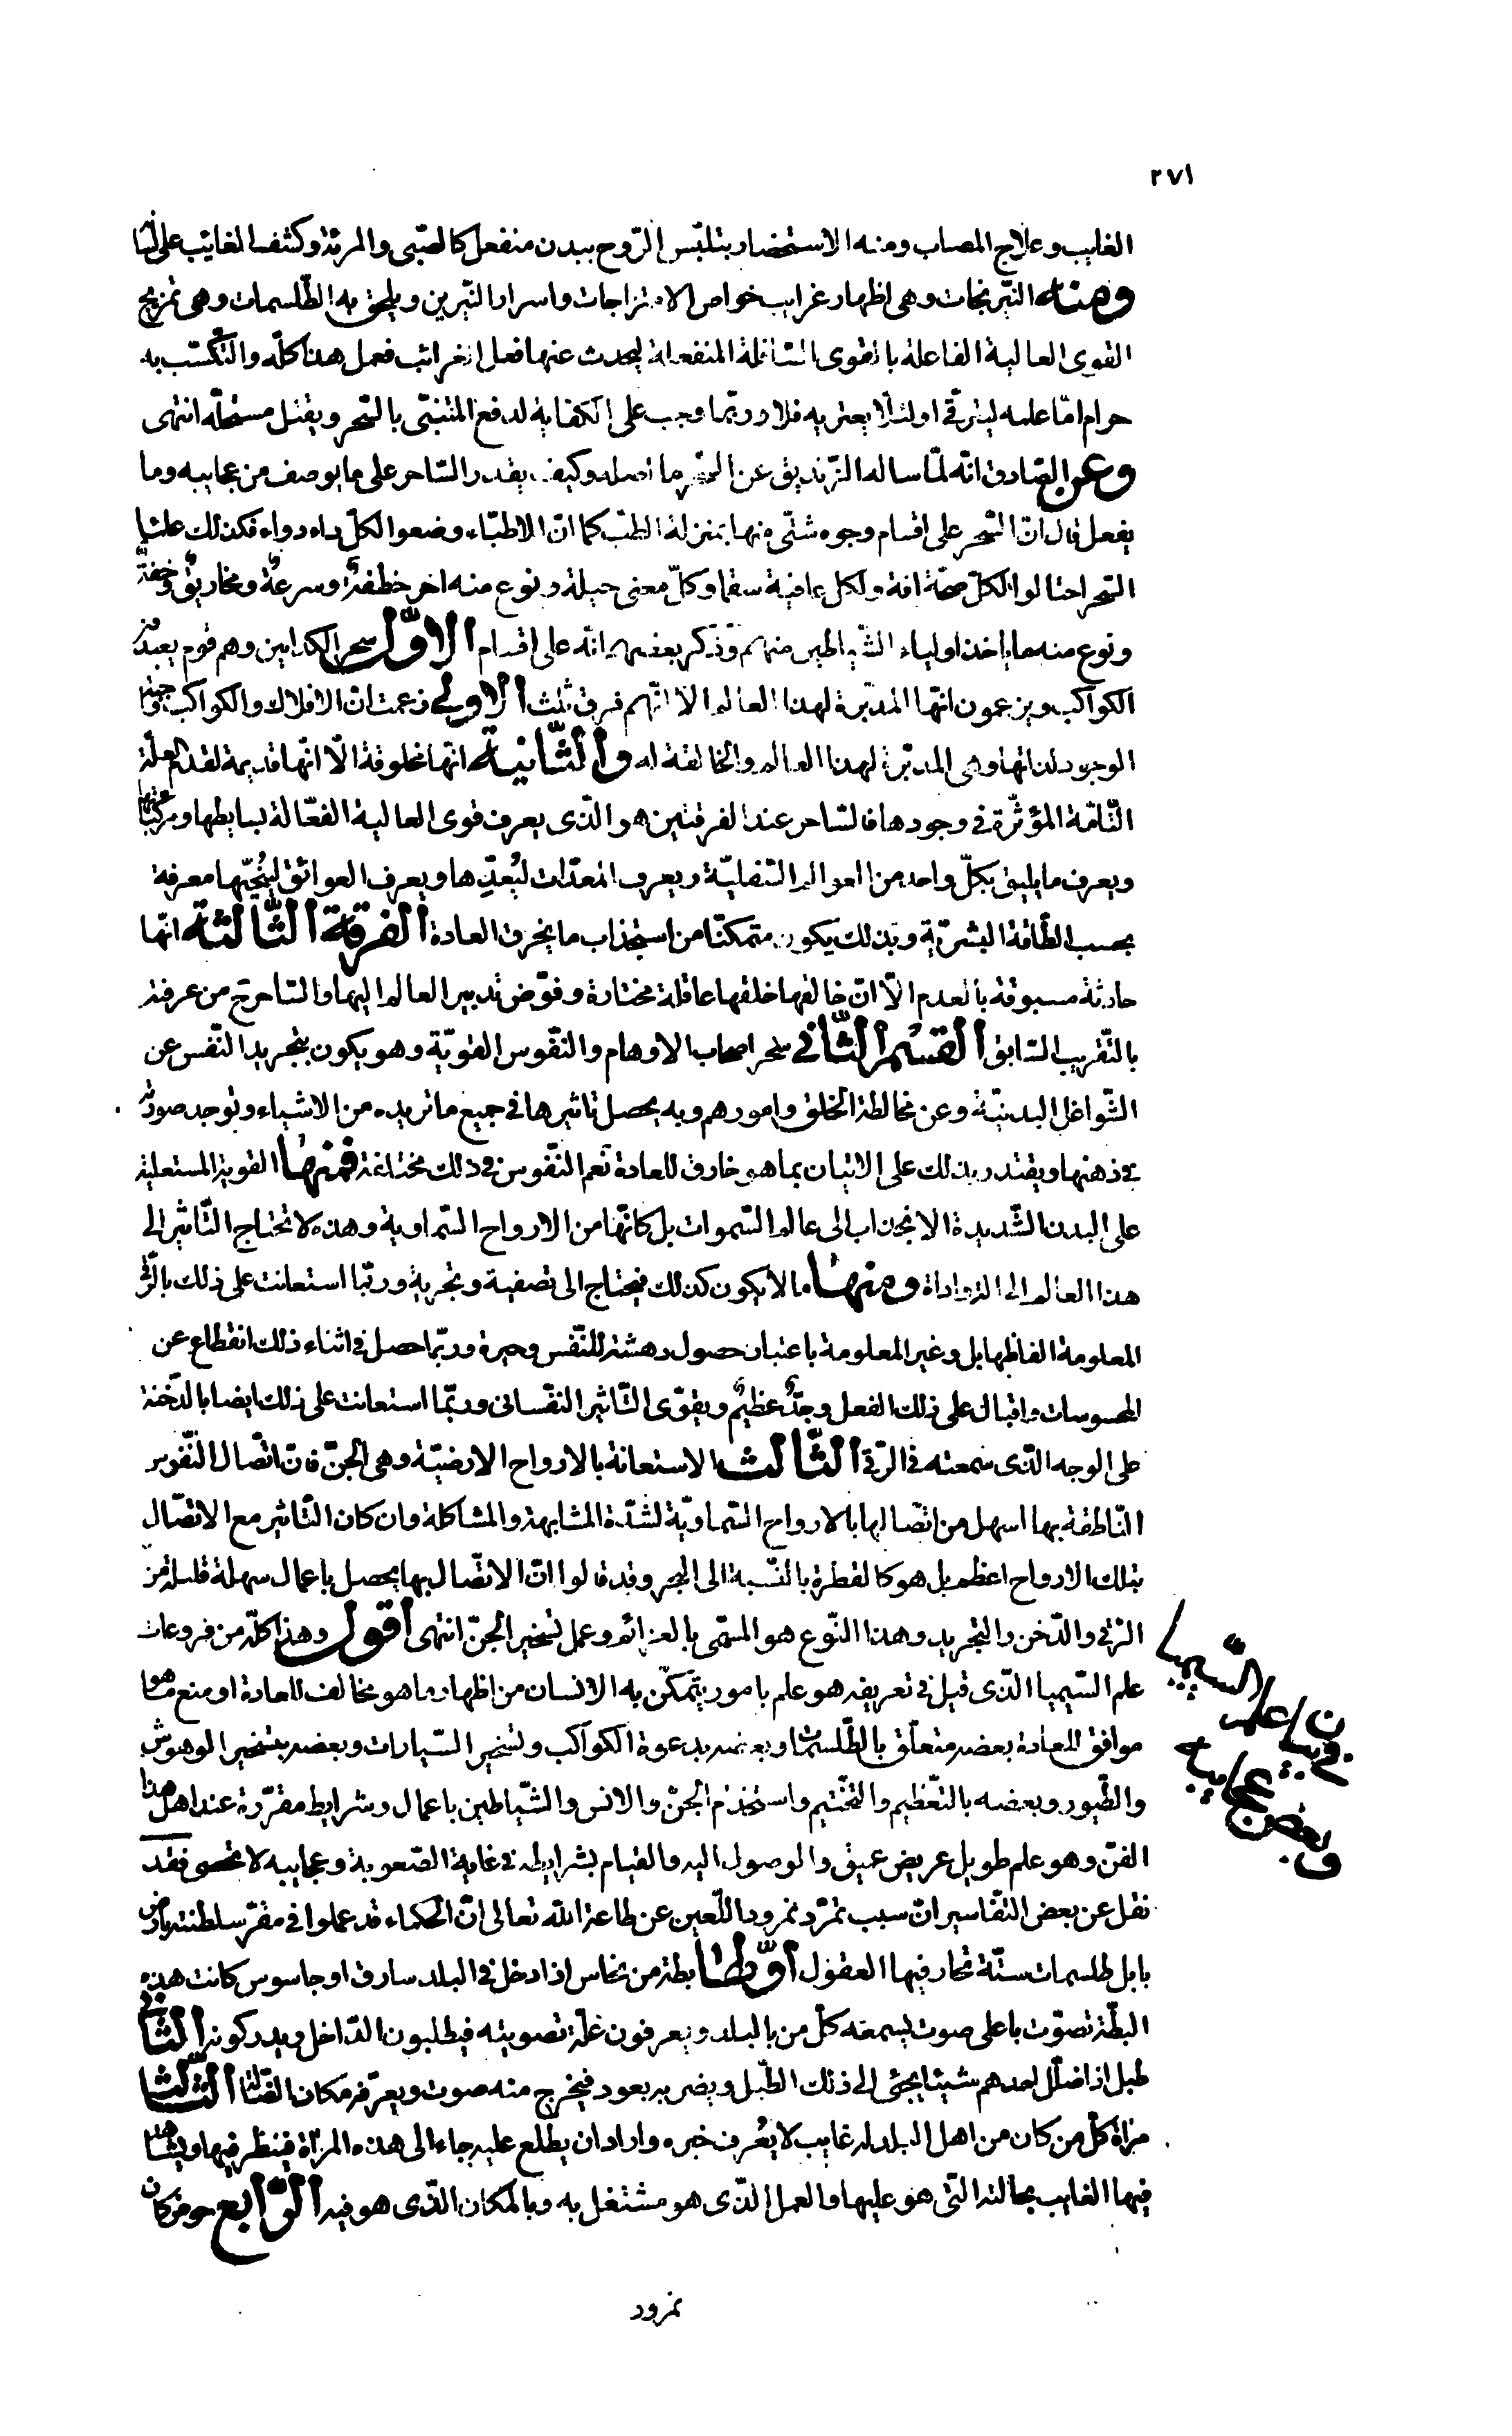 ٢٧١
الغايب وعلاج المصاب ومنه الاستحضار بتلبّس الرّوح ببدن منفعل كالصّبى والمرئة وكشف الغايب على لسا
ومنه النّيرنجات وهى اظهار غرايب خواص الامتزاجات واسرار النّيرين ويلحق به الطّلسمات وهى تمزيج
القوى العالية الفاعلة بالقوى السّافلة المنفعلة ليحدث عنها فعل غرائب فعمل هذا كلّه والتّكسّب به
حرام امّا علمه ليتوقّى او لئلّا يعتريه فلا وربّما وجب على الكفاية لدفع المتنبّى بالسّحر ويقتل مستحلّه انتهى
وعن الصّادق انّه لمّا ساله الزّنديق عن السّحر ما اصله وكيف يقدر السّاحر على ما يوصف من عجايبه وما
يفعل قال انّ السّحر على اقسام وجوه شتّى منها بمنزلة الطّب كما انّ الاطبّاء وضعوا لكلّ داء دواء فكذلك علماء
السّحر احتالوا لكلّ صحّة افة ولكل عافية سقما وكلّ معنى حيلة ونوع منه اخر خطفة وسرعة ومخاريق وخفّة
ونوع منه ما ياخذ اولياء الشّياطين منهم وذكر بعضهم انّه على اقسام الاوّل سحر الكدابين وهم قوم يعبدون
الكواكب ويزعمون انّها المدبّرة لهذا العالم الا انّهم فرق ثلث الاولى زعمت انّ الافلاك والكواكب واجبة
الوجود لذاتها وهى المدبّرة لهذا العالم والخالقة له والثّانية انّها مخلوقة الّا انّها قديمة لقدم العلّة
التّامّة المؤثّرة فى وجودها فالسّاحر عند الفرقتين هو الّذى يعرف قوى العالية الفعّالة بسايطها ومركّباتها
ويعرف ما يليق بكلّ واحد من العوالم السّفليّة ويعرف المعدّات ليُعِدّها ويعرف العوائق ليُنحّيها معرفة
بحسب الطّاقة البشريّة وبذلك يكون متمكنا من استجذاب ما يخرق العادة الفرقة الثّالثة انّها
حادثة مسبوقة بالعدم الّا انّ خالقها خلقها عاقلة مختارة وفوّض تدبير العالم اليها والسّاحر ح من عرفته
بالتّقريب السّابق القسم الثّانى سحر اصحاب الاوهام والنّفوس القويّة وهو يكون بتجريد النّفس عن
الشّواغل البدنيّة وعن مخالطة الخلق وامورهم وبه يحصل تاثيرها فى جميع ما تريده من الاشياء وتوجد صورته
فى ذهنها ويقتدر بذلك على الاتيان بما هو خارق للعادة نعم النّفوس فى ذلك مختلفة فمنها القوية المستعلية
على البدن الشّديدة الانجذاب الى عالم السّموات بل كانّها من الارواح السّماوية وهذه لا تحتاج التّاثير الى
هذا العالم الى الزّ وادادة ومنها ما لا يكون كذلك فيحتاج الى تصفية وتجربة وربّما استعانت على ذلك بالرّقى
المعلومة الفاظها بل وغير المعلومة باعتبار حصول دهشة للنّفس وحيرة وربّما حصل فى اثناء ذلك انقطاع عن
المحسوسات واقبال على ذلك الفعل وجدٌّ عظيمٌ ويقوّى التّاثير النّفسانى وربّما استعانت على ذلك ايضا بالدّخنة
على الوجه الّذى سمعته فى الرّقى الثّالث الاستعانة بالارواح الارضيّة وهى الجنّ فانّ اتّصال النّفوس
النّاطقة بها اسهل من اتّصالها بالارواح السّماويّة لشدّة المشابهة والمشاكلة وان كان التّاثير مع الاتصّال
بتلك الارواح اعظم بل هو كالقطرة بالنّسبة الى البحر وقد قالوا انّ الاتّصال بها يحصل باعمال سهلة قليلة من
الرّقى والدّخن والتجريد وهذا النّوع هو المسمّى بالعزائم وعمل تسخير الجنّ انتهى اقول وهذا كلّه من فروعات
علم السّيميا الّذى قيل فى تعريفه هو علم بامور يتمكّن به الانسان من اظهار ما هو مخالف للعادة او منع ما هو
موافق للعادة بعضه متعلّق بالطّلسمات وبعضه بدعوة الكواكب وتسخير السّيارات وبعضه بتسخير الوحوش
والطّيور وبعضه بالتّعظيم والتّختيم واستخذام الجنّ والانس والشّياطين باعمال وشرايط مقرّرة عند اهل هذا
الفنّ وهو علم طويل عريض عميق والوصول اليه والقيام بشرايطه فى غاية الصّعوبة وعجايبه لا تحصى فقد
نقل عن بعض التّفاسير انّ سبب تمرّد نمرود اللّعين عن طاعة اللّه تعالى انّ الحكماء قد عملوا فى مقرّ سلطنته بارض
بابل طلسمات ستّة تحار فيها العقول اوّلها بطة من نحاس اذا دخل فى البلد سارق او جاسوس كانت هذه
البطّة تصوّت باعلى صوت يسمعه كلّ من بالبلد ويعرفون علّة تصويته فيطلبون الدّاخل ويدركونه الثّانى
طبل اذا ضلّ لاحدهم شيئا يجئ الى ذلك الطّبل ويضربه بعود فيخرج منه صوت ويعرّفه مكان الضّالّة الثّالث
مراة كلّ من كان من اهل البلد له غايب لا يُعرف خبره واراد ان يطّلع عليه جاء الى هذه المراة فينظر فيها ويشاهد
فيها الغايب بحالته الّتى هو عليها والعمل الّذى هو مشتغل به وبالمكان الّذى هو فيه الرّابع حوض كان
فى بيان علم السّيميا
وبعض عجايبه
نمرود